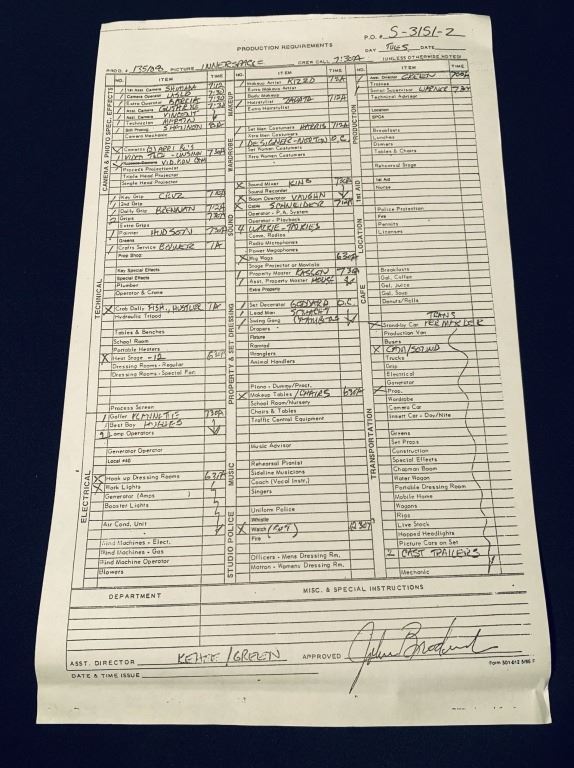 P.O. # S-3151-2
PRODUCTION REQUIREMENTS
DAY TUES DATE
PROD. # PICTURE INNERSPACE CREW CALL 7:30A (UNLESS OTHERWISE NOTED)
NO. ITEM TIME
CAMERA & PHOTO SPEC. EFFECTS
1st Asst. Camera
Camera Operator
Extra Operator
Asst. Camera GUTHRIE
Asst. Camera VINCENT
Technician
Still Photog. SHANNON
Camera Mechanic
X Cameras (3) ARRI
1 VIDEO TECH
VID. RON COM
Process Projectionist
Triple Head Projector
Single Head Projector
TECHNICAL
1 Key Grip CRUZ 730A
1 2nd Grip
1 Dolly Grip BRENNAN
Grips 730A
Extra Grips
1 Painter HUDSON 730A
Greens
1 Crafts Service BOWER 1A
Prop Shop:
Key Special Effects
Special Effects
Plumber
Operator & Crane
X Crab Dolly FISH, HUSTLER 1A
Hydraulic Tripod
Tables & Benches
School Room
Portable Heaters
X Heat Stage - 12 630A
Dressing Rooms - Regular
Dressing Rooms - Special Port.
Process Screen
ELECTRICAL
1 Gaffer PLANNETTE 730A
1 Best Boy HUGHES
Lamp Operators
Generator Operator
Local #40
X Hook up Dressing Rooms 630A
X Work Lights
Generator (Amps )
Booster Lights
Air Cond. Unit
Wind Machines - Elect.
Wind Machines - Gas
Wind Machine Operator
Blowers
NO. ITEM TIME
MAKEUP
1 Makeup Artist RIZZO
Extra Makeup Artist
Body Makeup
1 Hairstylist ZAPATA 715A
Extra Hairstylist
WARDROBE
1 Set Men Costumers HARRIS 715A
Xtra Men Costumers
DESIGNER-NORTON O.C.
Set Women Costumers
Xtra Women Costumers
SOUND
X Sound Mixer KING 730A
Sound Recorder
X Boom Operator VAUGHN
X Cable SCHNEIDER
Operator - P.A. System
Operator - Playback
4 WALKIE-TALKIES
Comm. Radios
Radio Microphones
Power Megaphones
X Wig Wags 630A
Stage Projector or Moviola
PROPERTY & SET DRESSING
1 Property Master 730A
1 Asst. Property Master HOUSE
Extra Property
1 Set Decorator GODDARD O.C.
1 Lead Man
Swing Gang CHAMBERS
Drapers
Fixture
Ramrod
Wranglers
Animal Handlers
Piano - Dummy/Pract.
X Makeup Tables / CHAIRS 630A
School Room/Nursery
Chairs & Tables
Traffic Control Equipment
MUSIC
Music Advisor
Rehearsal Pianist
Sideline Musicians
Coach (Vocal Instr.)
Singers
STUDIO POLICE
Uniform Police
Whistle
X Watch
Fire
Officers - Mens Dressing Rm.
Matron - Womens Dressing Rm.
NO. ITEM TIME
PRODUCTION
1 Asst. Director GREEN 700A
Trainee
1 Script Supervisor WARNER 730A
Technical Advisor
Location
SPCA
Breakfasts
Lunches
Dinners
Tables & Chairs
Rehearsal Stage
1st AID
1st Aid
Nurse
LOCATION
Police Protection
Fire
Permits
Licenses
CAFE
Breakfasts
Gal. Coffee
Gal. Juice
Gal. Soup
Donuts/Rolls
TRANSPORTATION
TRANS
X Stand-by Car PER MARDER
Production Van
Buses
X CAM/SOUND
Trucks
Grip
Electrical
Generator
X Prop.
Wardrobe
Camera Car
Insert Car - Day/Nite
Greens
Set Props
Construction
Special Effects
Chapman Boom
Water Wagon
Portable Dressing Room
Mobile Home
Wagons
Rigs
Live Stock
Hooded Headlights
Picture Cars on Set
2 CAST TRAILERS
Mechanic
DEPARTMENT MISC. & SPECIAL INSTRUCTIONS
ASST. DIRECTOR KEHOE/GREEN APPROVED
DATE & TIME ISSUE